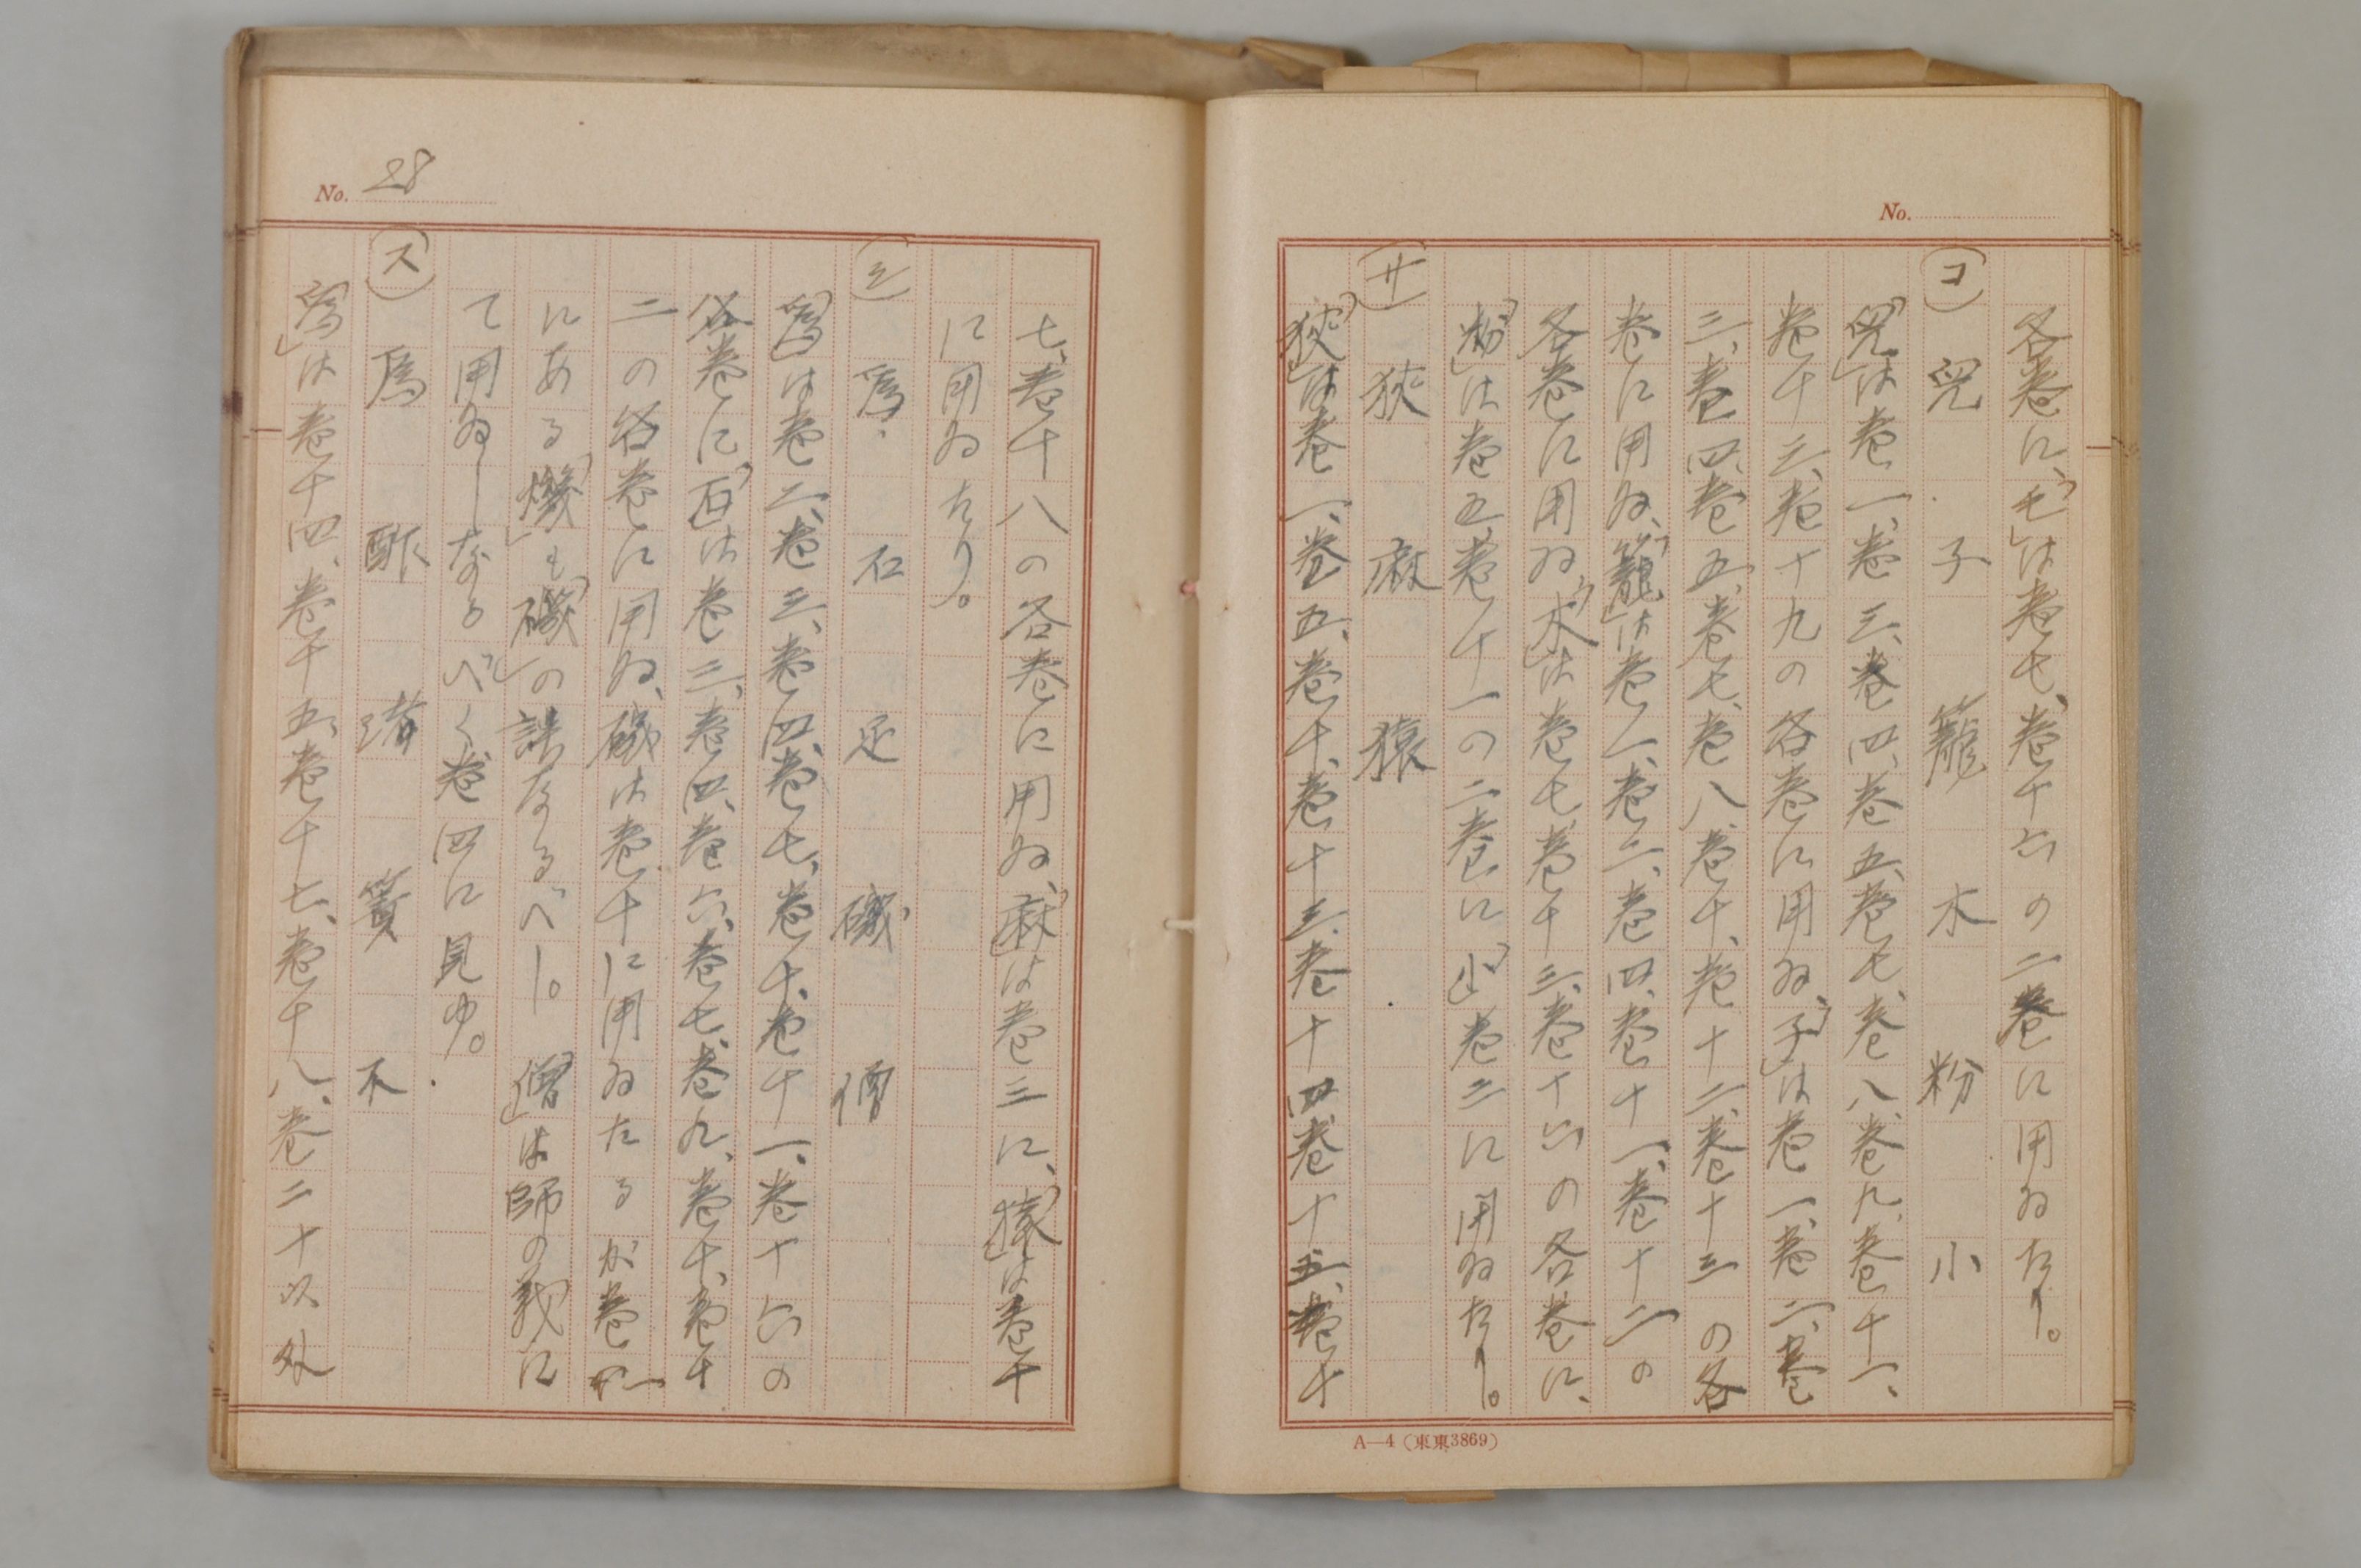 No.
各巻に、「毛」は巻七、巻十六の二巻に用ゐたり。
(コ) 兒 子 籠 木 粉 小
「兒」は巻一、巻三、巻四、巻五、巻七、巻八、巻九、巻十一、
巻十三、巻十九の各巻に用ゐ、「子」は巻一、巻二、巻
三、巻四、巻五、巻七、巻八、巻十、巻十二、巻十三の各
巻に用ゐ、「籠」は巻一、巻二、巻四、巻十一、巻十二の
各巻に用ゐ、「木」は巻七、巻十三、巻十六の各巻に、
「粉」は巻五、巻十一の二巻に、「小」巻二に用ゐたり。
(サ) 狹 麻 猿
「狹」は巻一、巻五、巻十、巻十三、巻十四、巻十五、巻十
A—4 (東東3869)
No. 28
七、巻十八の各巻に用ゐ、「麻」は巻三に、「猿」は巻十
に用ゐたり。
(シ) 爲 石 足 磯 僧
「爲」は巻二、巻三、巻四、巻七、巻十、巻十一、巻十六の
各巻に、「石」は巻三、巻四、巻六、巻七、巻九、巻十、巻十
二の各巻に用ゐ、磯は巻十に用ゐたるが巻
にある「㷨」も「磯」の誤なるべし。「僧」は師の義に
て用ゐしなるべく巻四に見ゆ。
(ス) 爲 酢 渚 簀 不
「爲」は巻十四、巻十五、巻十七、巻十八、巻二十以外